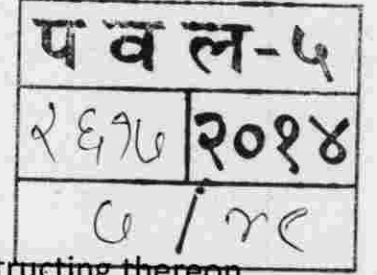 प व ल-५
२६१७ २०१४
७ / ४९
ructing thereon